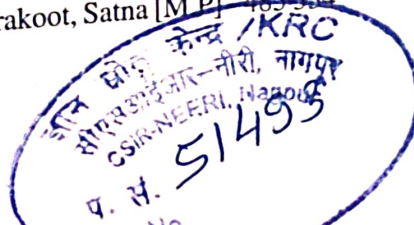 rakoot, Satna [M.P.] 485-334
ज्ञान स्रोत केन्द्र /KRC
सीएसआईआर-नीरी, नागपुर
CSIR-NEERI, Nagpur
प. सं. 51495
No